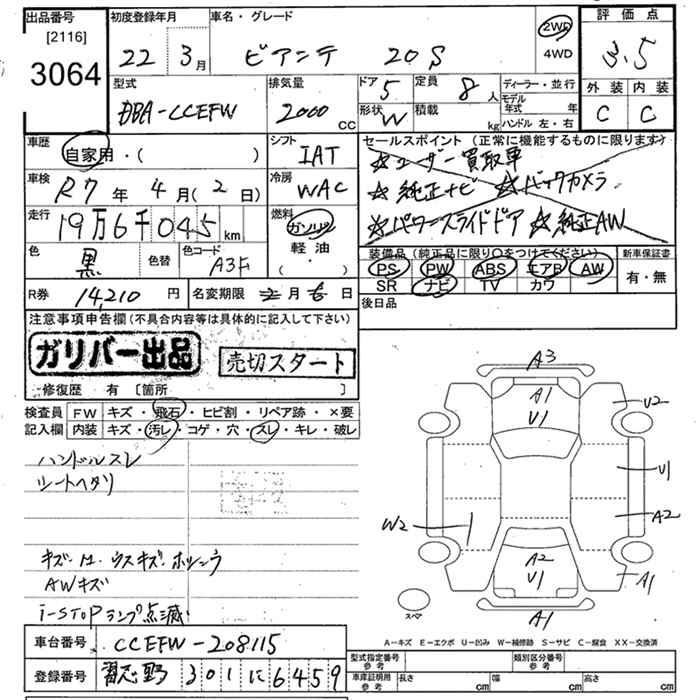 出品番号 [2116] 3064
初度登録年月 22年 3月
車名・グレード ビアンテ 20S
2WD 4WD
評価点 3.5
外装 C 内装 C
型式 DBA-CCEFW
排気量 2000 cc
ドア 5 定員 8人
形状 W 積載 kg
ディーラー・並行
モデル年式 年
ハンドル 左・右
車歴 自家用・( )
シフト IAT
セールスポイント (正常に機能するものに限ります)
☆ユーザー買取車
☆純正ナビ ☆バックカメラ
☆パワースライドドア ☆純正AW
車検 R7年 4月(2日)
冷房 WAC
走行 19万6千045km
燃料 ガソリン 軽油 ( )
色 黒 色替 色コード A3F
装備品 (純正品に限り○をつけてください)
PS PW ABS エアB AW
SR ナビ TV カワ
新車保証書 有・無
R券 14,210円 名変期限 月 日
後日品
注意事項申告欄(不具合内容等は具体的に記入して下さい)
ガリバー出品 売切スタート
修復歴 有 [箇所 ]
検査員記入欄
FW キズ・飛石・ヒビ割・リペア跡・×要
内装 キズ・汚レ・コゲ・穴・スレ・キレ・破レ
ハンドルスレ
シートヘタリ
AWキズ
i-STOPランプ点滅
A3
A1
U1
U2
U1
A2
W2
A2
U1
A1
A1
スペア
A-キズ E-エクボ U-凹み W-補修跡 S-サビ C-腐食 XX-交換済
車台番号 CCEFW-208115
登録番号 習志野 301 に 6459
型式指定番号 参考 類別区分番号 参考
車庫証明用 参考 長さ cm 幅 cm 高さ cm